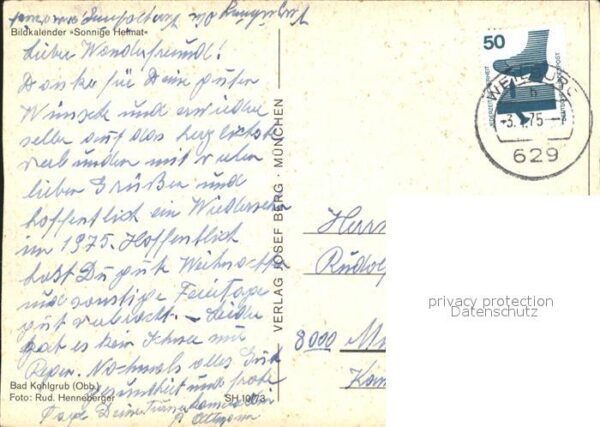 Bildkalender »Sonnige Heimat«
Lieber Wanderfreund!
Danke für Deine guten
Wünsche und erwidere
selbe auf das herzlichste
verbunden mit vielen
lieben Grüßen und
hoffentlich ein Wiedersehen
im 1975. Hoffentlich
hast Du gute Weihnachten
und sonstige Feiertage
gut verbracht. – Leider
gab es kein Schnee nur
Regen. Nochmals alles Gute
Gesundheit und frohe
Tage Deine
Ottmann
Bad Kohlgrub (Obb.)
Foto: Rud. Henneberger
SH 10/73
VERLAG JOSEF BERG · MÜNCHEN
50
DEUTSCHE BUNDESPOST
-3.1.75
h
629
Herrn
Rudolf
8000 Mü
privacy protection
Datenschutz